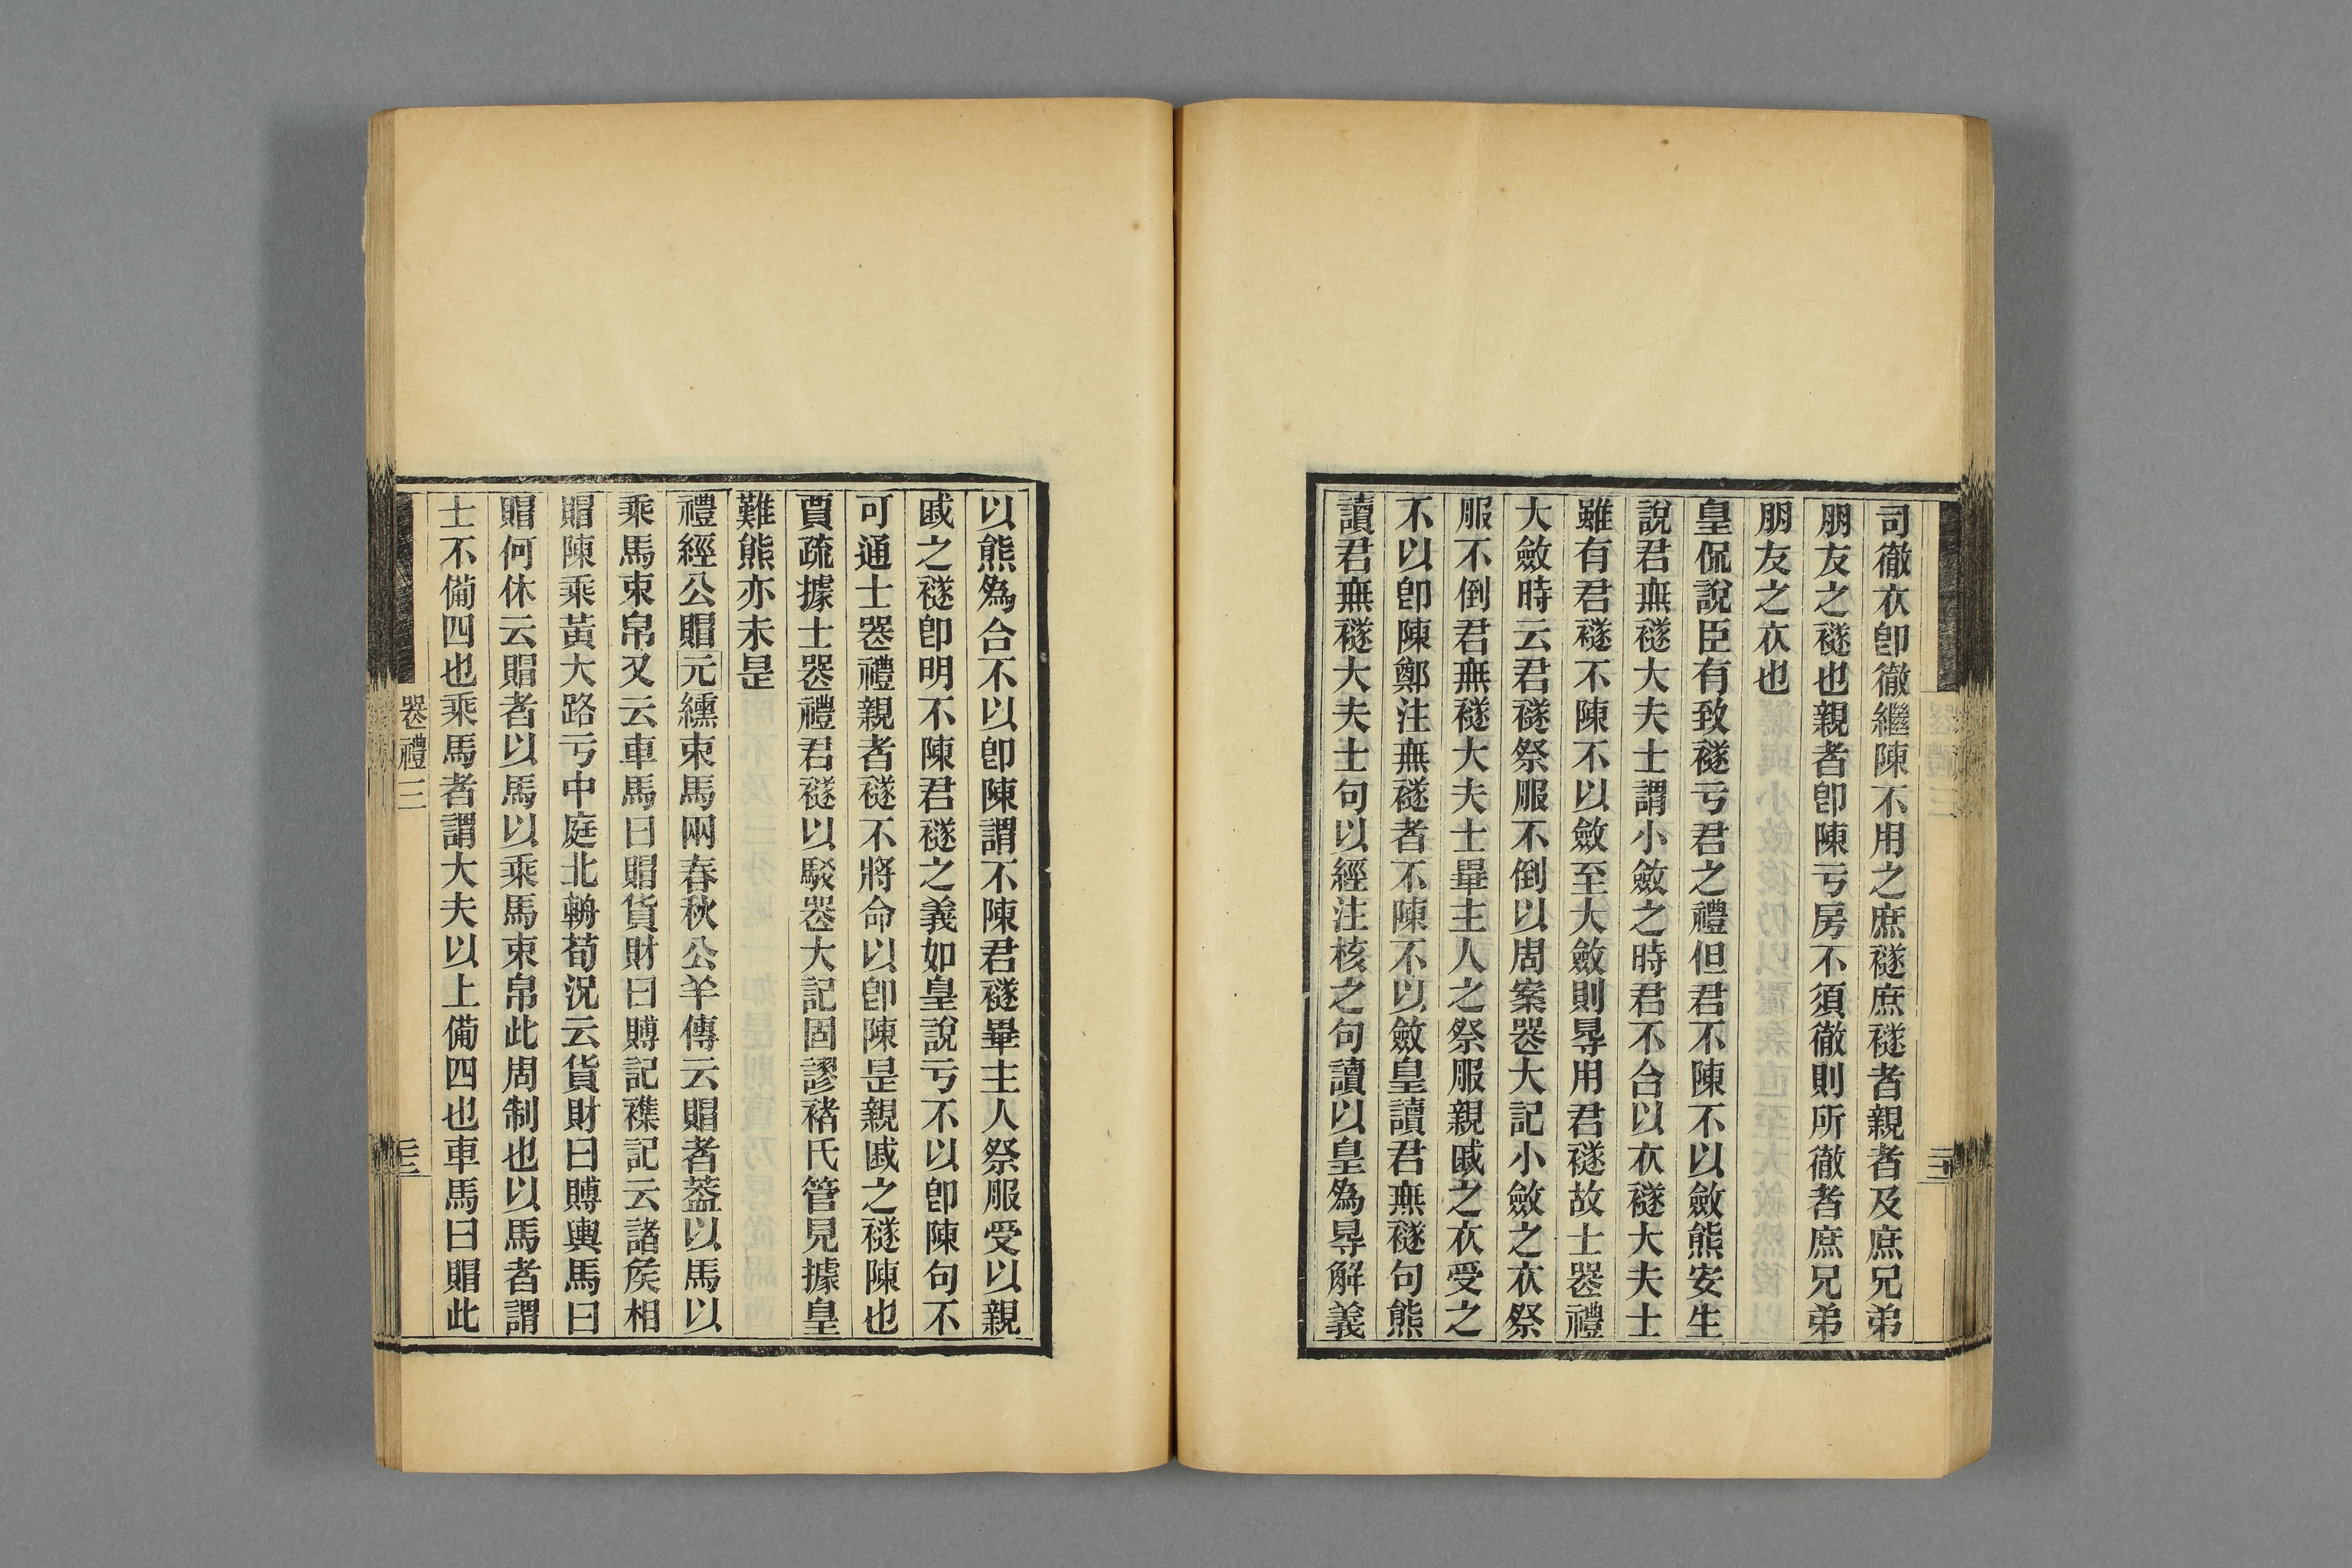 司徹衣卽徹繼陳不用之庶襚庶襚者親者及庶兄弟
朋友之襚也親者卽陳亏房不須徹則所徹者庶兄弟
朋友之衣也
皇侃說臣有致襚亏君之禮但君不陳不以斂熊安生
說君無襚大夫士謂小斂之時君不合以衣襚大夫士
雖有君襚不陳不以斂至大斂則㝵用君襚故士䘮禮
大斂時云君襚祭服不倒以周案䘮大記小斂之衣祭
服不倒君無襚大夫士畢主人之祭服親戚之衣受之
不以卽陳鄭注無襚者不陳不以斂皇讀君無襚句熊
讀君無襚大夫士句以經注核之句讀以皇爲㝵解義
以熊爲合不以卽陳謂不陳君襚畢主人祭服受以親
戚之襚卽明不陳君襚之義如皇說亏不以卽陳句不
可通士䘮禮親者襚不將命以卽陳是親戚之襚陳也
賈疏據士䘮禮君襚以駁䘮大記固謬褚氏管見據皇
難熊亦未是
禮經公賵元纁束馬兩春秋公羊傳云賵者葢以馬以
乘馬束帛又云車馬曰賵貨財曰賻記襍記云諸矦相
賵陳乘黃大路亏中庭北輈荀況云貨財曰賻輿馬曰
賵何休云賵者以馬以乘馬束帛此周制也以馬者謂
士不備四也乘馬者謂大夫以上備四也車馬曰賵此
䘮禮三